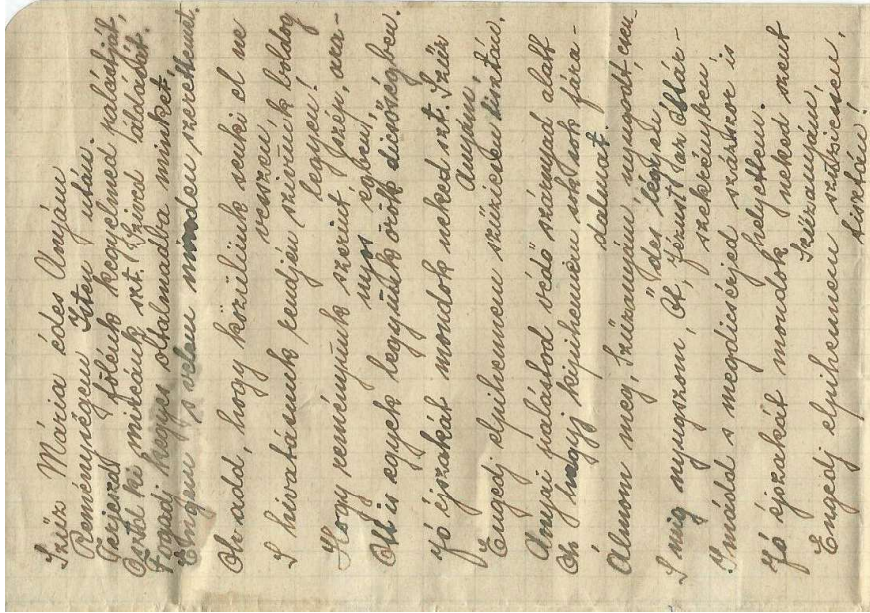 Szűz Mária édes Anyám
Reménységem Isten után.
Terjeszd föléuk kegyelmed palástját,
Oszd ki mireánk szt. Szived áldását.
Fogadj kegyes oltalmadba minket,
Engem s velem minden szerettemet.
Oh add, hogy közülünk senki el ne
vesszen,
S hivatásunk rendjén szivünk boldog
legyen!
Hogy reményünk szerint szép, ara-
nyos égben,
Ott is egyek legyünk örök dicsőségben.
Jó éjszakát mondok neked szt. Szűz
Anyám,
Engedj elpihennem szűziesen tisztán,
Anyai palástod védő szárnyad alatt
Oh hagyj kipihennem sok sok fára-
dalmat.
Álmom meg, Szűzanyám, nyugodt, csen-
des légyen,
S mig nyugszom, Ót, Jézust zár Oltár-
szekrényben,
Imádd s megdicsérjed százszor is
helyettem.
Jó éjszakát mondok neked szent
Szűzanyám,
Engedj elpihennem szűziesen,
tisztán!